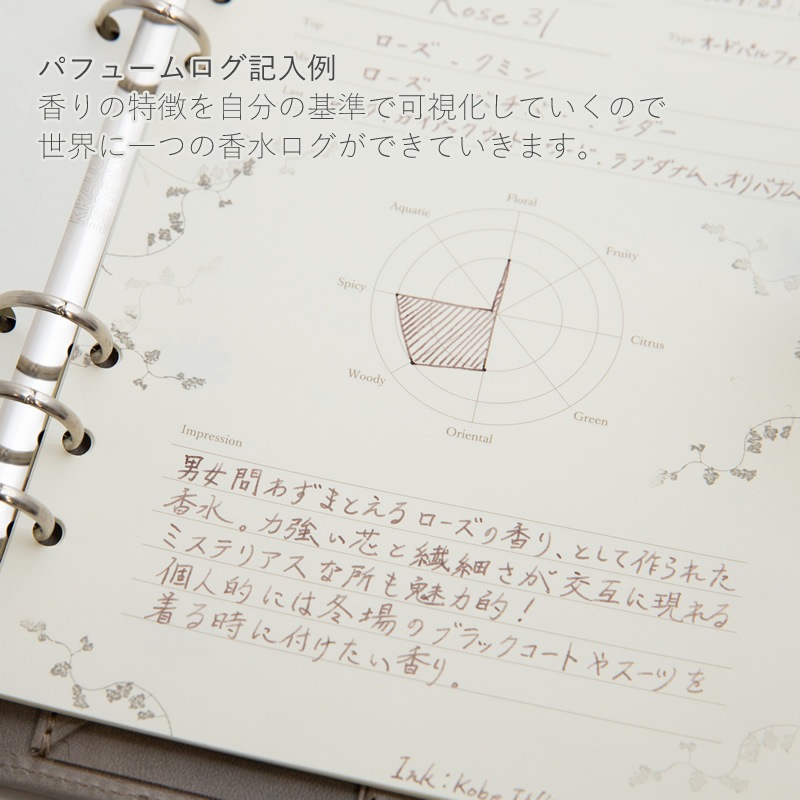 Rose 31
Top
ローズ、クミン
Type オードパルファ
ローズ
Last
、シダー
、ラブダナム、オリバナム
パフュームログ記入例
香りの特徴を自分の基準で可視化していくので
世界に一つの香水ログができていきます。
Floral
Aquatic
Fruity
Spicy
Citrus
Woody
Green
Oriental
Impression
男女問わずまとえるローズの香り、として作られた
香水。力強い芯と繊細さが交互に現れる
ミステリアスな所も魅力的！
個人的には冬場のブラックコートやスーツを
着る時に付けたい香り。
Ink:Kobe